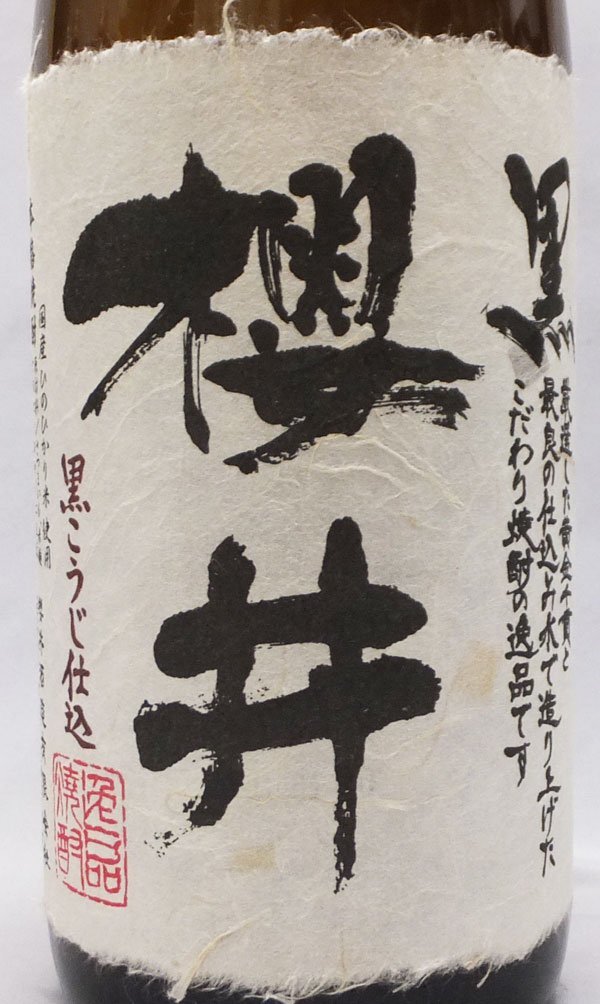 黒
厳選した黄金千貫と
最良の仕込み水で造り上げた
こだわり焼酎の逸品です
櫻井
黒こうじ仕込
逸品
焼酎
国産ひのひかり米使用
櫻井酒造有限会社
本格焼酎